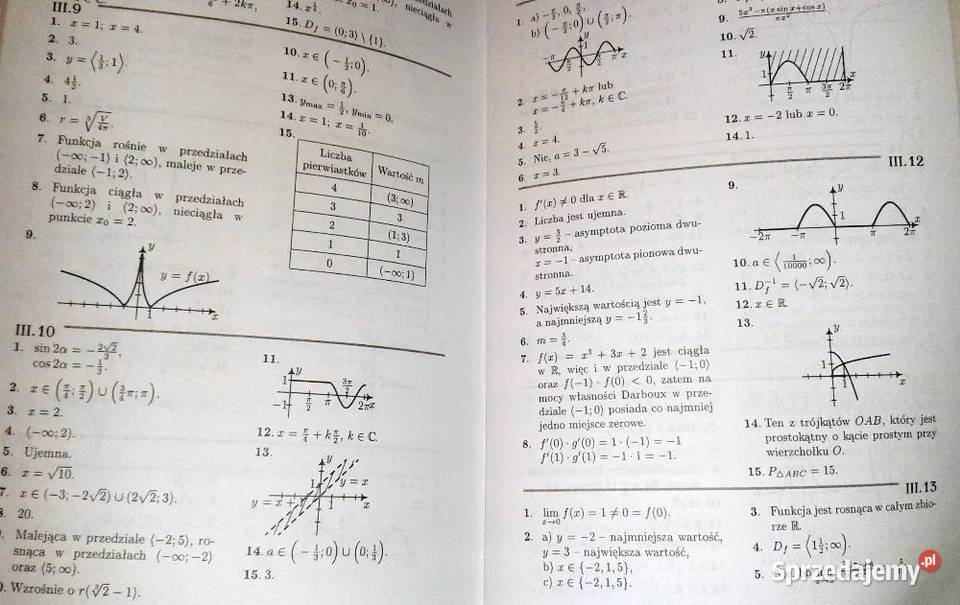 III.9
1. x = 1; x = 4.
2. 3.
3. y = ⟨1/3; 1⟩.
4. 4 1/2.
5. 1.
6. r = ∛(V/4π).
7. Funkcja rośnie w przedziałach
(−∞; −1) i ⟨2; ∞), maleje w prze-
dziale ⟨−1; 2⟩.
8. Funkcja ciągła w przedziałach
(−∞; 2) i (2; ∞), nieciągła w
punkcie x₀ = 2.
9.
y
y = f(x)
1
x
14.
15. D_f = (0; 3) \ {1}.
nieciągła w
10. x ∈ (−1/2; 0).
11. x ∈ (0; π/6).
13. y_max = 1/2, y_min = 0.
14. x = 1; x = 1/10.
15.
Liczba pierwiastków Wartość m
4 (3; ∞)
3 3
2 (1; 3)
1 1
0 (−∞; 1)
III.10
1. sin 2α = −2√2/3,
cos 2α = −1/3.
2. x ∈ (π/4; π/2) ∪ (3/4 π; π).
3. x = 2.
4. (−∞; 2).
5. Ujemna.
6. x = √10.
7. x ∈ (−3; −2√2) ∪ (2√2; 3).
8. 20.
Malejąca w przedziale ⟨−2; 5⟩, ro-
snąca w przedziałach (−∞; −2⟩
oraz ⟨5; ∞).
Wzrośnie o r(∛2 − 1).
11.
y
1
−1
π/2
π
3π/2
2π x
12. x = π/4 + k π/2, k ∈ C.
13.
y
1
y = x
1
x
14. a ∈ (−1/3; 0) ∪ (0; 1/3).
15. 3.
1. a) −π/2, 0, π/2.
b) (−π/2; 0) ∪ (π/2; π).
2. x = −π/12 + kπ lub
x = −π/4 + kπ, k ∈ C.
4. x = 4.
5. Nie, a = 3 − √5.
6. x = 3.
9. 5x³−π(x sin x+cos x)/πx²
10. √2.
11.
y
1
π/2
π
3π/2
2π
x
12. x = −2 lub x = 0.
14. 1.
III.12
1. f′(x) ≠ 0 dla x ∈ R.
2. Liczba jest ujemna.
3. y = 3/2 – asymptota pozioma dwu-
stronna,
x = −1 – asymptota pionowa dwu-
stronna.
4. y = 5x + 14.
5. Największą wartością jest y = −1,
a najmniejszą y = −1 2/3.
6. m = 3/4.
7. f(x) = x³ + 3x + 2 jest ciągła
w R, więc i w przedziale ⟨−1; 0⟩
oraz f(−1) · f(0) < 0, zatem na
mocy własności Darboux w prze-
dziale (−1; 0) posiada co najmniej
jedno miejsce zerowe.
8. f′(0) · g′(0) = 1 · (−1) = −1
f′(1) · g′(1) = −1 · 1 = −1.
9.
y
1
−2π
−π
π
2π
x
10. a ∈ ⟨1/10000; ∞).
11. D_f⁻¹ = ⟨−√2; √2⟩.
12. x ∈ R
13.
y
1
x
14. Ten z trójkątów OAB, który jest
prostokątny o kącie prostym przy
wierzchołku O.
15. P△ABC = 15.
III.13
1. lim x→0 f(x) = 1 ≠ 0 = f(0).
2. a) y = −2 – najmniejsza wartość,
y = 3 – największa wartość,
b) x ∈ {−2, 1, 5},
c) x ∈ {−2, 1, 5}.
3. Funkcja jest rosnąca w całym zbio-
rze R.
4. D_f = ⟨1 1/2; ∞).
5.
Sprzedajemy.pl